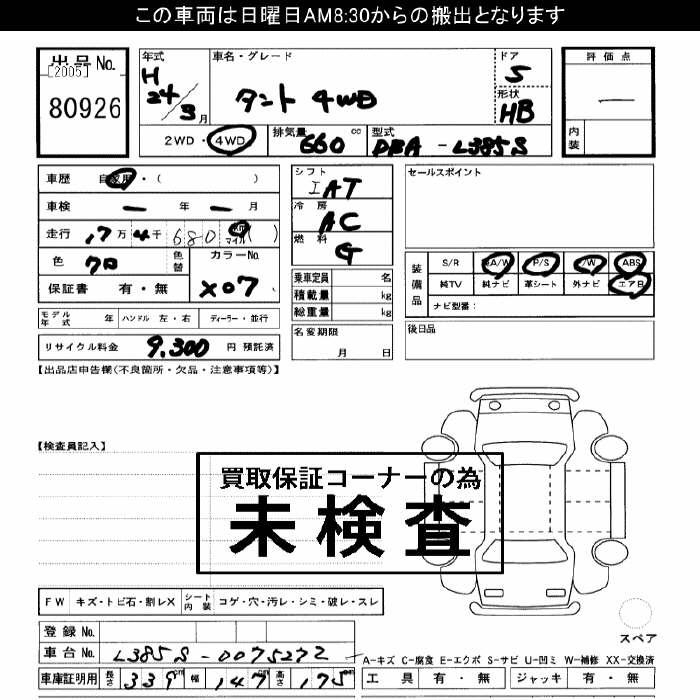 この車両は日曜日AM8:30からの搬出となります
出品No.
[2005]
80926
年式
H
24/3月
車名・グレード
タント 4WD
ドア
5
形状
HB
評価点
内装
2WD・4WD
排気量
660 cc
型式
DBA - L385S
車歴 自家用・( )
車検 ー 年 ー 月
走行 17万4千680 マイル( )
色 クロ 色替
カラーNo.
X07
保証書 有・無
モデル年式 年 ハンドル 左・右 ディーラー・並行
リサイクル料金 9,300 円 預託済
シフト
IAT
冷房
AC
燃料
G
乗車定員 名
積載量 kg
総重量 kg
名変期限
月 日
セールスポイント
装備品
S/R A/W P/S P/W ABS
純TV 純ナビ 革シート 外ナビ エアB
ナビ型番:
後日品
【出品店申告欄(不良箇所・欠品・注意事項等)】
【検査員記入】
買取保証コーナーの為
未検査
FW キズ・トビ石・割レX シート内装 コゲ・穴・汚レ・シミ・破レ・スレ
登録No.
車台No. L385S-0075272
車庫証明用 長さ 339cm 幅 147cm 高さ 175cm
スペア
A-キズ C-腐食 E-エクボ S-サビ U-凹ミ W-補修 XX-交換済
工具 有・無 ジャッキ 有・無